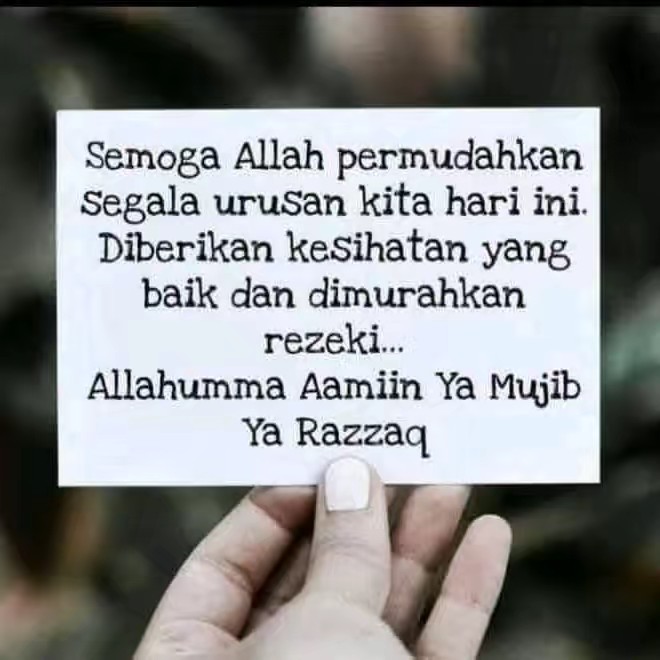 Semoga Allah permudahkan
segala urusan kita hari ini.
Diberikan kesihatan yang
baik dan dimurahkan
rezeki...
Allahumma Aamiin Ya Mujib
Ya Razzaq